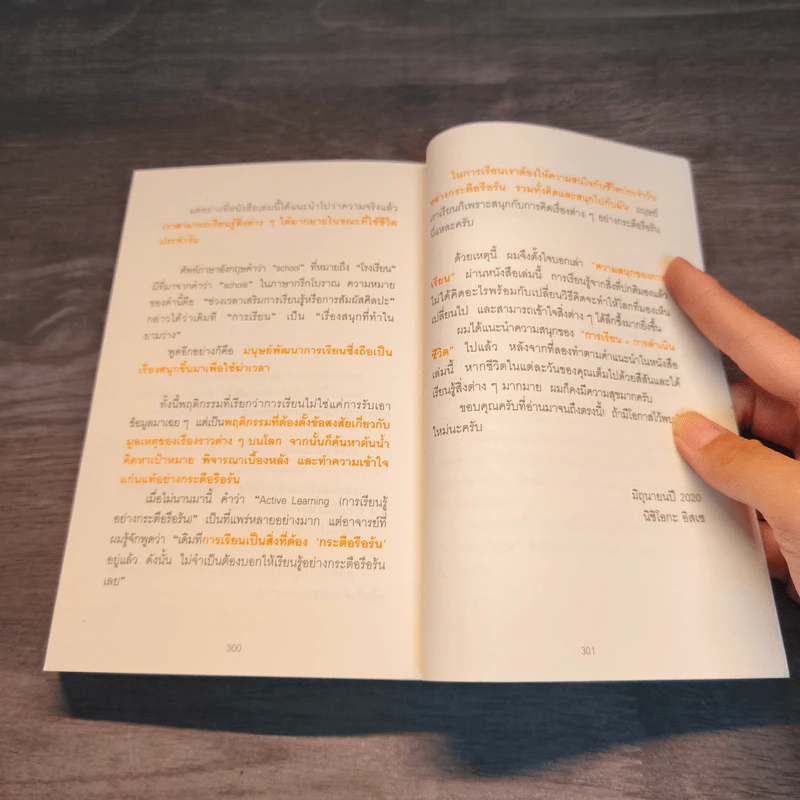 แต่อย่างที่หนังสือเล่มนี้ได้แนะนำไปว่าความจริงแล้ว
เราสามารถเรียนรู้สิ่งต่าง ๆ ได้มากมายในขณะที่ใช้ชีวิต
ประจำวัน
ศัพท์ภาษาอังกฤษคำว่า “school” ที่หมายถึง “โรงเรียน”
มีที่มาจากคำว่า “scholē” ในภาษากรีกโบราณ ความหมาย
ของคำนี้คือ “ช่วงเวลาเสริมการเรียนรู้หรือการสัมผัสศิลปะ”
กล่าวได้ว่าเดิมที “การเรียน” เป็น “เรื่องสนุกที่ทำใน
ยามว่าง”
พูดอีกอย่างก็คือ มนุษย์พัฒนาการเรียนซึ่งถือเป็น
เรื่องสนุกขึ้นมาเพื่อใช้ฆ่าเวลา
ทั้งนี้พฤติกรรมที่เรียกว่าการเรียนไม่ใช่แค่การรับเอา
ข้อมูลมาเฉย ๆ แต่เป็นพฤติกรรมที่ต้องตั้งข้อสงสัยเกี่ยวกับ
มูลเหตุของเรื่องราวต่าง ๆ บนโลก จากนั้นก็ค้นหาต้นน้ำ
คิดหาเป้าหมาย พิจารณาเบื้องหลัง และทำความเข้าใจ
แก่นแท้อย่างกระตือรือร้น
เมื่อไม่นานมานี้ คำว่า “Active Learning (การเรียนรู้
อย่างกระตือรือร้น)” เป็นที่แพร่หลายอย่างมาก แต่อาจารย์ที่
ผมรู้จักพูดว่า “เดิมทีการเรียนเป็นสิ่งที่ต้อง ‘กระตือรือร้น’
อยู่แล้ว ดังนั้น ไม่จำเป็นต้องบอกให้เรียนรู้อย่างกระตือรือร้น
เลย”
300
ในการเรียนเราต้องให้ความสนใจกับชีวิตประจำวัน
อย่างกระตือรือร้น รวมทั้งคิดและสนุกไปกับมัน มนุษย์
เราเรียนก็เพราะสนุกกับการคิดเรื่องต่าง ๆ อย่างกระตือรือร้น
นี่แหละครับ
ด้วยเหตุนี้ ผมจึงตั้งใจบอกเล่า “ความสนุกของการ
เรียน” ผ่านหนังสือเล่มนี้ การเรียนรู้จากสิ่งที่ปกติมองแล้ว
ไม่ได้คิดอะไรพร้อมกับเปลี่ยนวิธีคิดจะทำให้โลกที่มองเห็น
เปลี่ยนไป และสามารถเข้าใจสิ่งต่าง ๆ ได้ลึกซึ้งมากยิ่งขึ้น
ผมได้แนะนำความสนุกของ “การเรียน = การดำเนิน
ชีวิต” ไปแล้ว หลังจากที่ลองทำตามคำแนะนำในหนังสือ
เล่มนี้ หากชีวิตในแต่ละวันของคุณเต็มไปด้วยสีสันและได้
เรียนรู้สิ่งต่าง ๆ มากมาย ผมก็คงมีความสุขมากครับ
ขอบคุณครับที่อ่านมาจนถึงตรงนี้! ถ้ามีโอกาสไว้พบ
ใหม่นะครับ
มิถุนายนปี 2020
นิชิโอกะ อิสเซ
301